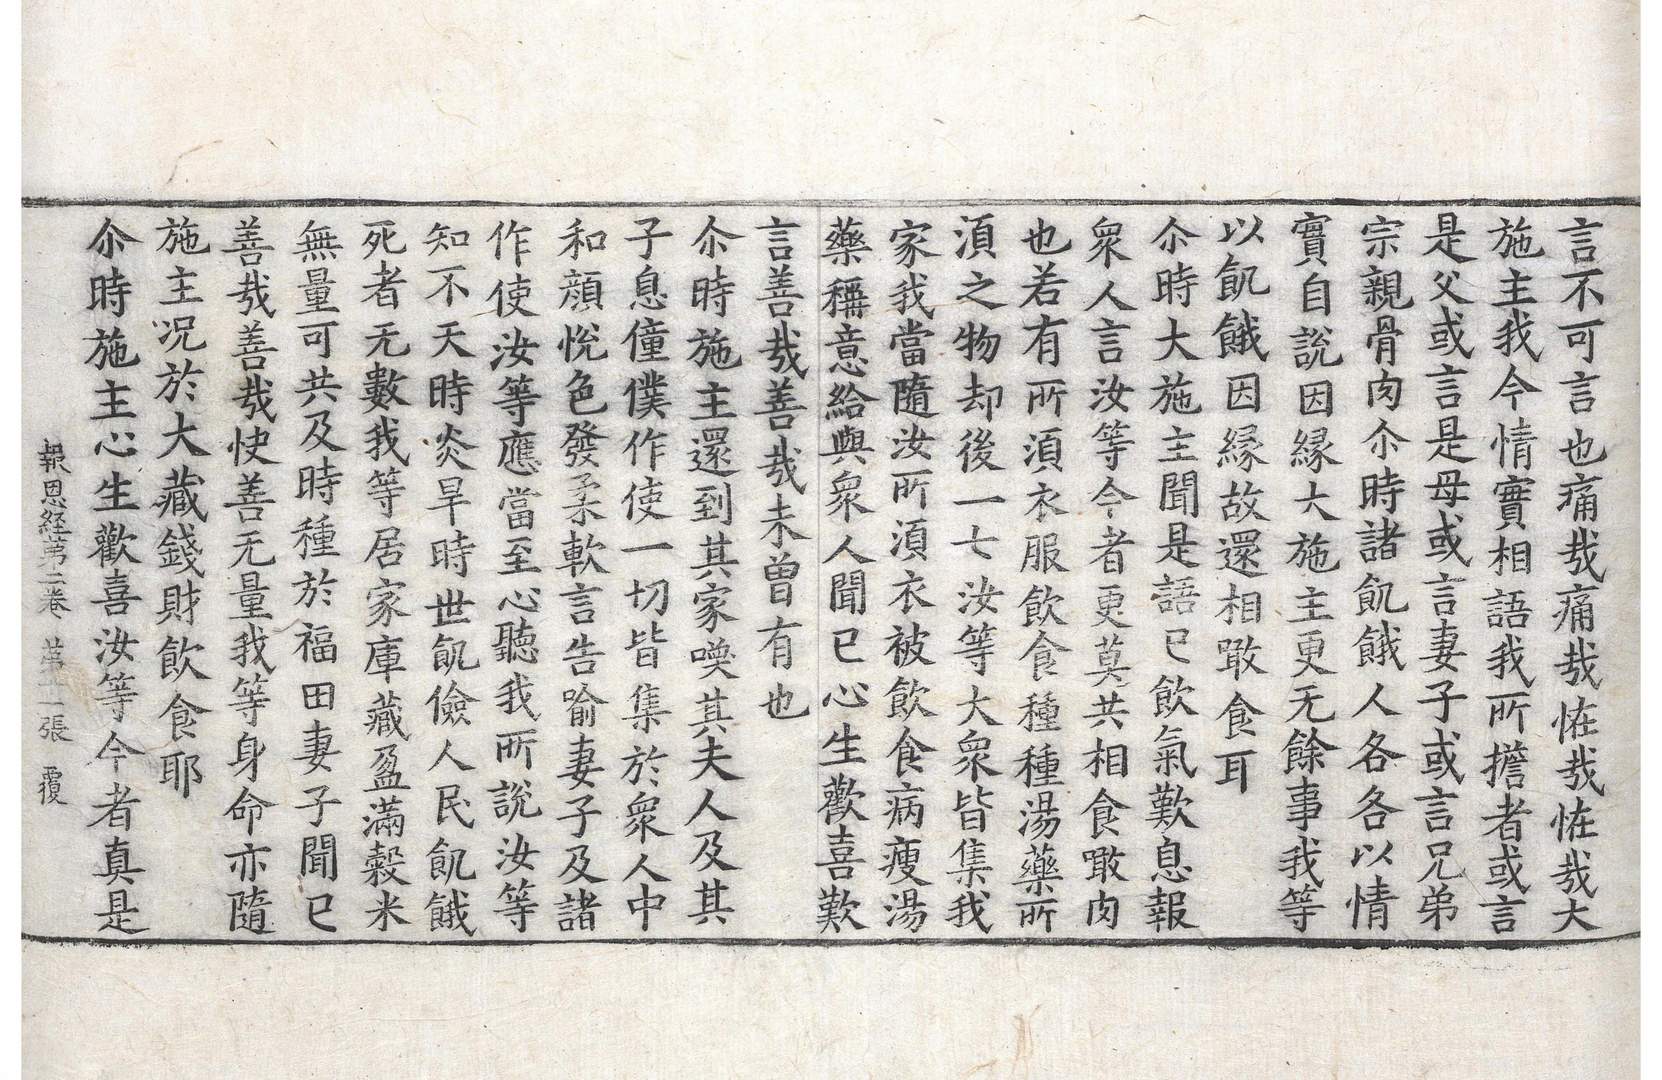 言不可言也痛㢤痛㢤恠㢤恠㢤大
施主我今情實相語我所擔者或言
是父或言是母或言妻子或言兄弟
宗親骨肉尒時諸飢餓人各各以情
實自說因緣大施主更无餘事我等
以飢餓因緣故還相噉食耳
尒時大施主聞是語已飲氣歎息報
衆人言汝等今者更莫共相食噉肉
也若有所湏衣服飲食種種湯藥所
湏之物却後一七汝等大衆皆集我
家我當隨汝所湏衣被飲食病瘦湯
藥稱意給與衆人聞已心生歡喜歎
言善㢤善㢤未曽有也
尒時施主還到其家喚其夫人及其
子息僮僕作使一切皆集於衆人中
和顔悅色發柔軟言告喻妻子及諸
作使汝等應當至心聽我所說汝等
知不天時炎旱時世飢儉人民飢餓
死者无數我等居家庫藏盈滿穀米
無量可共及時種於福田妻子聞已
善㢤善㢤快善无量我等身命亦隨
施主况於大藏錢財飲食耶
尒時施主心生歡喜汝等今者真是
報恩経第二卷 第十一張 覆